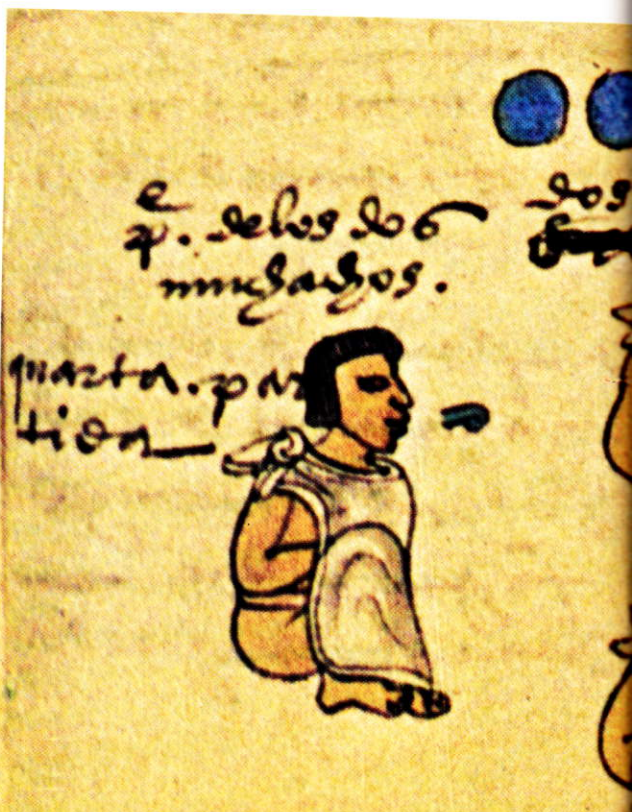 pe. delos dos
muchachos.
quarta. par
tida
dos